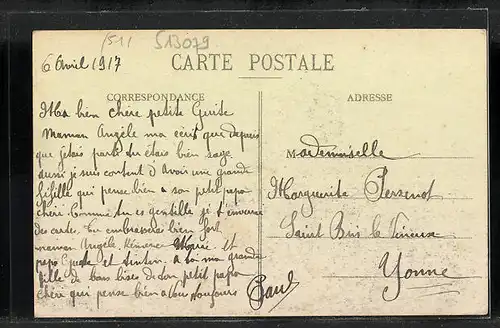 1511 513079
6 Avril 1917
CARTE POSTALE
CORRESPONDANCE
ADRESSE
Ma bien chère petite Guite
maman Angèle ma écrit que depuis
que jetais parti tu étais bien sage
aussi je suis content d'avoir une grande
fifille qui pense bien a son petit papa
chéri Comme tu es gentille je t'enverrai
des cartes. Tu embrasseras bien fort
maman Angèle, et
papa et tintin. a toi ma grande
fille de bons bises de ton petit papa
chéri qui pense bien a Vous toujours
Paul
Mademoiselle
Marguerite Persenot
Saint Bris le Vineux
Yonne